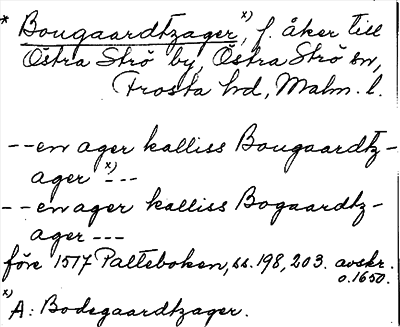 * Bougaardtzager x), f. åker till
Östra Strö by, Östra Strö sn,
Frosta hd, Malm. l.
-- en ager kalliss Bougaardtz-
ager x) ---
-- en ager kalliss Bogaardtz-
ager ---
före 1517 Palteboken, ss. 198, 203. avskr.
o. 1650.
x) A: Bodsgaardtzager.